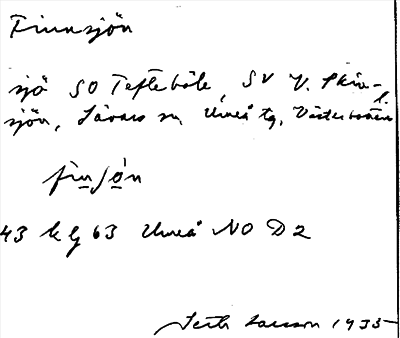 Finnsjön
sjö SO Teftebole, SV V. Skin-
sjön, Sävars sn, Umeå tg, Västerbotten l.
fìnʃǿn
43 kg 63 Umeå NO D2
Seth Larsson 1935